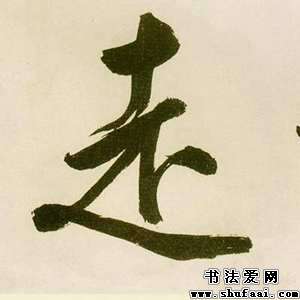 走
书法爱网
www.shufaai.com